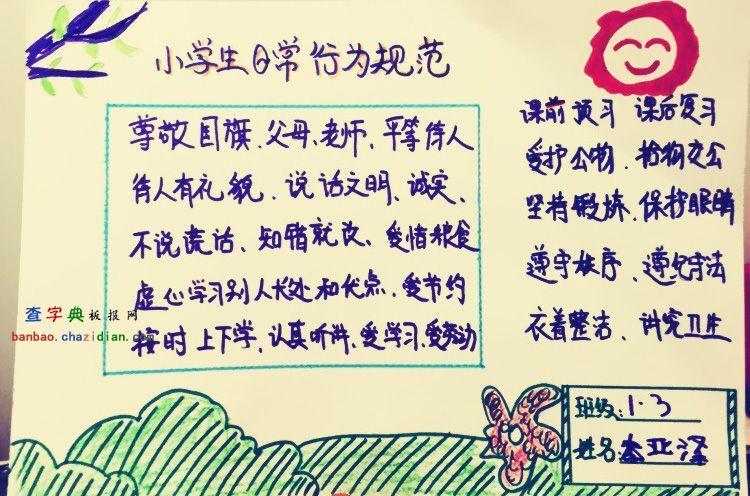 小学生日常行为规范
尊敬国旗、父母、老师、平等待人
待人有礼貌、说话文明、诚实、
不说谎话、知错就改、爱惜粮食
虚心学习别人长处和优点、爱节约
按时上下学、认真听讲、爱学习、爱劳动
课前预习 课后复习
爱护公物、拾物交公
坚持锻炼、保护眼睛
遵守秩序、遵纪守法
衣着整洁、讲究卫生
查字典板报网
banbao.chazidian.com
班级:1.3
姓名 亚泽